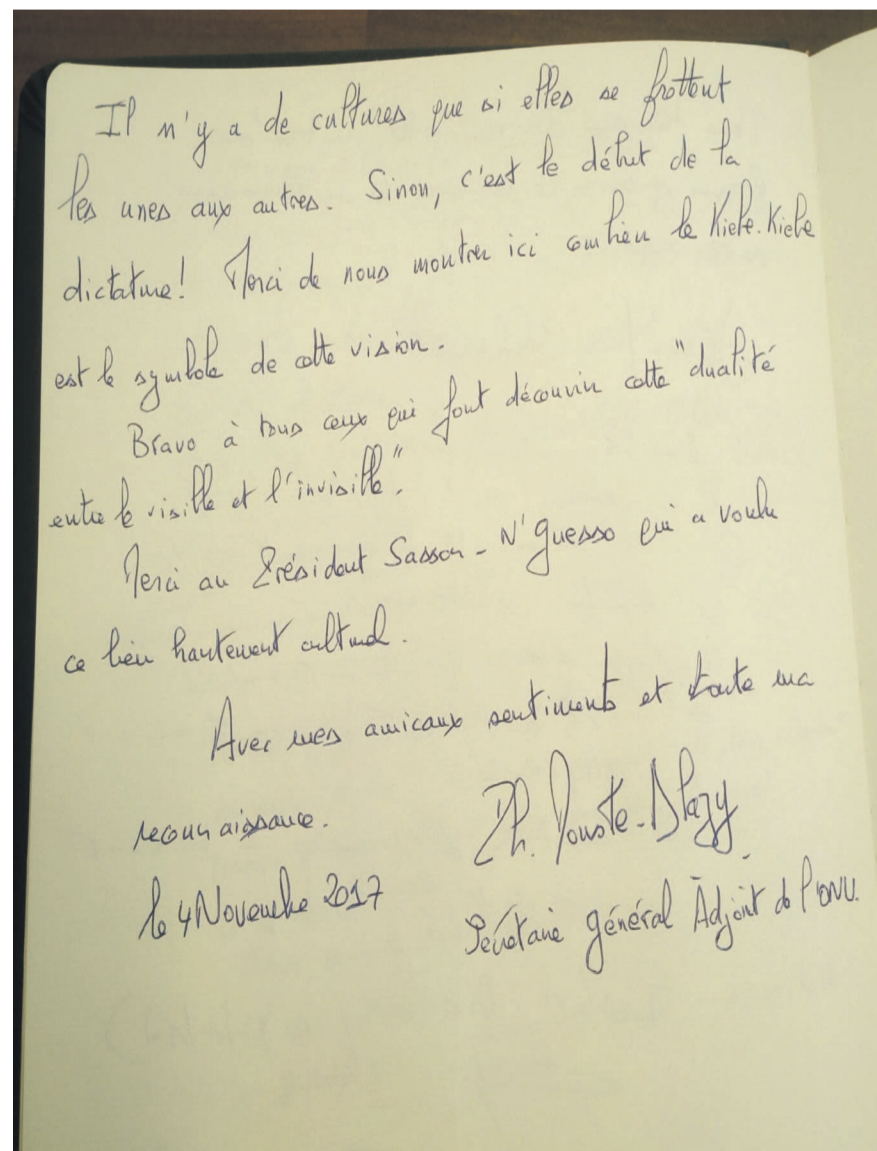 Il n'y a de cultures que si elles se frottent
les unes aux autres. Sinon, c'est le début de la
dictature! Merci de nous montrer ici combien le Kiebe-Kiebe
est le symbole de cette vision.
Bravo à tous ceux qui font découvrir cette "dualité
entre le visible et l'invisible".
Merci au Président Sassou-N'Guesso qui a voulu
ce lieu hautement culturel.
Avec mes amicaux sentiments et toute ma
reconnaissance.
Ph. Douste-Blazy
le 4 Novembre 2017
Secrétaire général Adjoint de l'ONU.